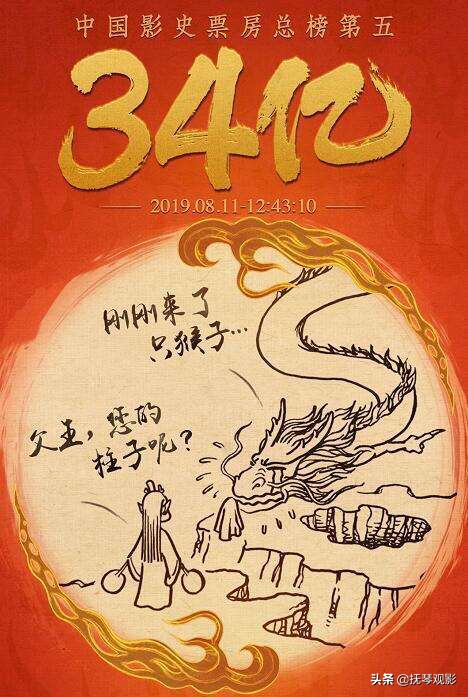 中国影史票房总榜第五
34亿
2019.08.11-12:43:10
刚刚来了
只猴子…
父王，您的
柱子呢？
头条 @抚琴观影